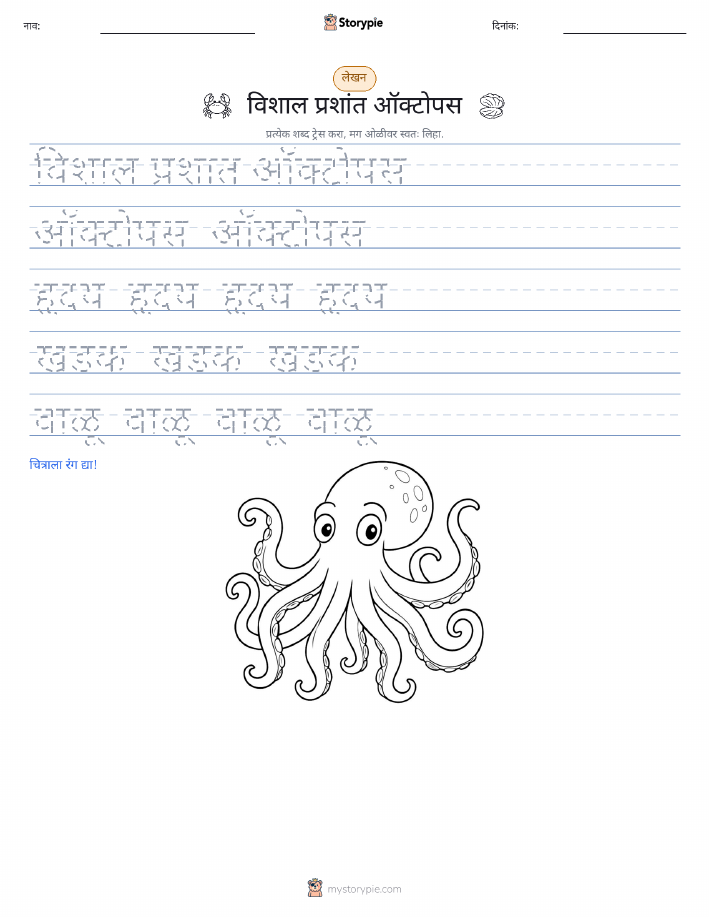 नाव:
Storypie
दिनांक:
लेखन
विशाल प्रशांत ऑक्टोपस
प्रत्येक शब्द ट्रेस करा, मग ओळीवर स्वतः लिहा.
विशाल प्रशांत ऑक्टोपस
ऑक्टोपस ऑक्टोपस
हृदय हृदय हृदय हृदय
खडक खडक खडक
वाळू वाळू वाळू वाळू
चित्राला रंग द्या!
mystorypie.com